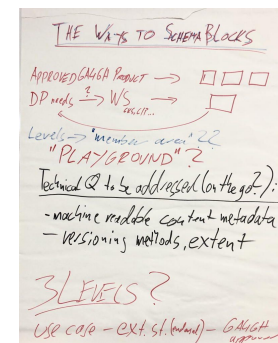 THE WAYS TO SCHEMABLOCKS
APPROVED GA4GH PRODUCT →
DP needs —?→ WS
Levels → "member area" ??
"PLAYGROUND" ?
Technical Q to be addressed (on the go?):
- machine readable content metadata
- versioning methods, extent
3 LEVELS ?
use case - ext. st. - GA4GH